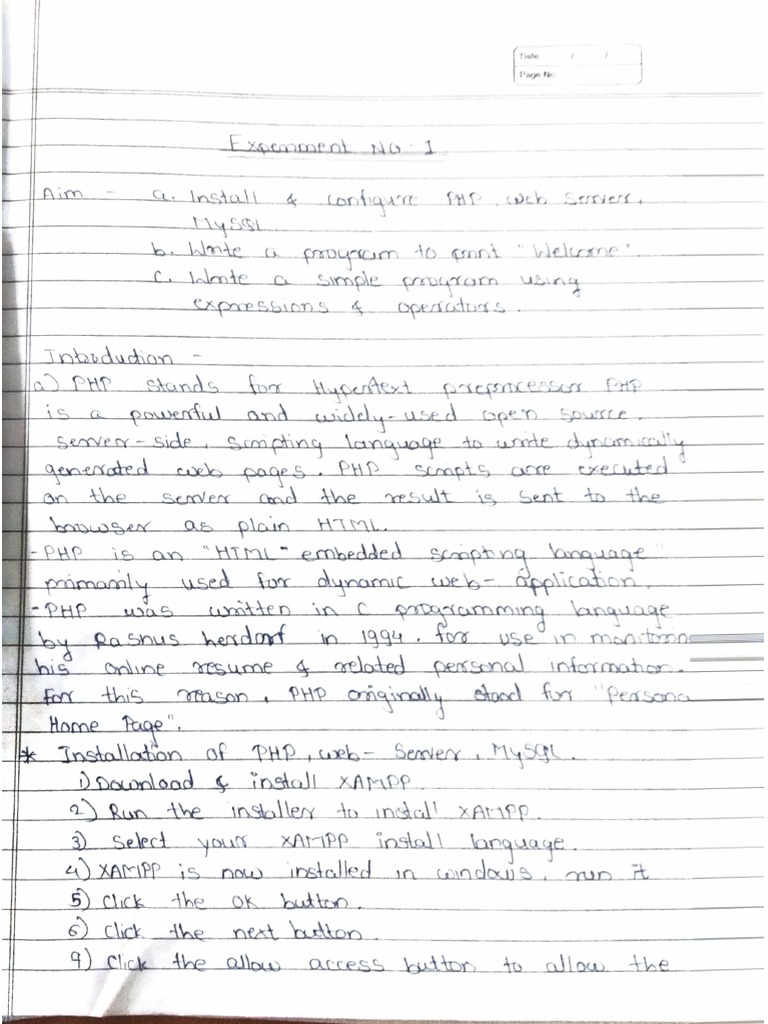 Date / /
Page No.
Experiment No. 1
Aim - a. Install & configure PHP, web server,
MySQL
b. Write a program to print "Welcome".
c. Write a simple program using
expressions & operators.
Introduction -
a) PHP stands for Hypertext preprocessor PHP
is a powerful and widely-used open source.
server-side, scripting language to write dynamically
generated web pages. PHP scripts are executed
on the server and the result is sent to the
browser as plain HTML.
- PHP is an "HTML - embedded scripting language"
primarily used for dynamic web-application.
- PHP was written in C programming language
by Rasnus herdorf in 1994. for use in monitorin
his online resume & related personal information.
For this reason, PHP originally stand for "Persona
Home Page".
* Installation of PHP, web-Server, MySQL.
1) Download & install XAMPP.
2) Run the installer to install XAMPP.
3) Select your XAMPP install language.
4) XAMPP is now installed in windows, run it
5) Click the OK button.
6) Click the next button.
9) Click the allow access button to allow the